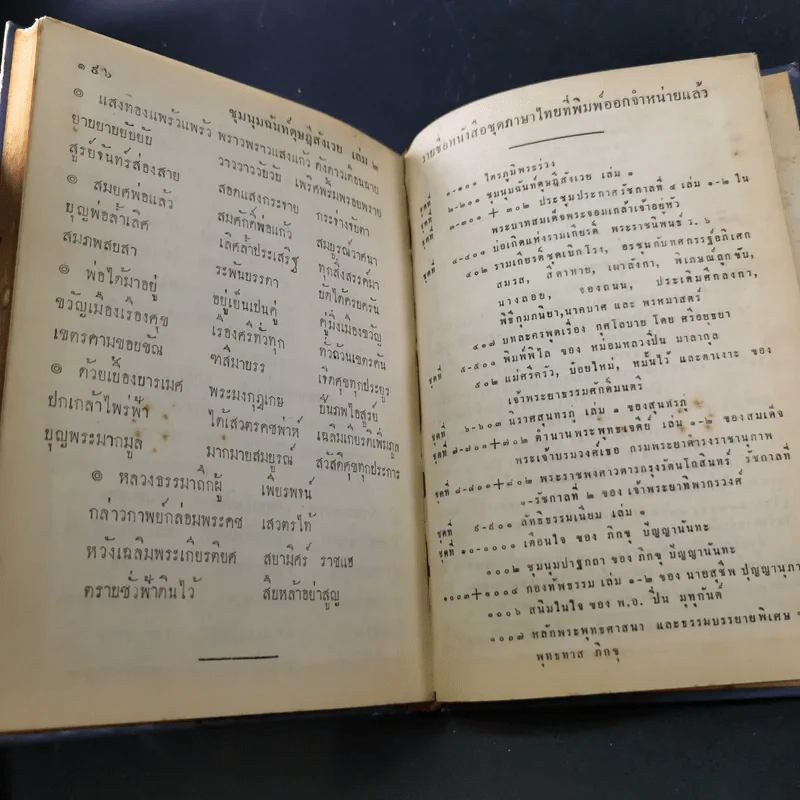 ๑๔๖
ชุมนุมฉันท์ดุษฎีสังเวย เล่ม ๒
๏ แสงทองแพร้วแพร้ว พราวพราวแสงแก้ว ดังดาวเดือนฉาย
ยายยายยับยับ วาววาววับวับ เพริศพริ้มพรอยพราย
สูรย์จันทร์ส่องสาย สอดแสงกระจาย กระจ่างรัยดา
๏ สมยศพ่อแล้ว สมศักดิ์พ่อแก้ว สมบูรณ์วาศนา
บุญพ่อล้ำเลิศ เลิศล้ำประเสริฐ ทุกสิ่งสรรค์มา
สมภพสบสา ระพันบรรดา บัดได้ครอบครัน
๏ พ่อได้มาอยู่ อยู่เย็นเป็นคู่ คู่มิ่งเมืองขวัญ
ขวัญเมืองเรืองศุข เรืองศรีทั่วทุก ทั่วถ้วนเขตรคัน
เขตรคามขอบขัณ ฑสีมาบรร เจิดศุขทุกประยูร
๏ ด้วยเบื้องบารเมศ พระมงกุฎเกษ ปิ่นภพไอสูรย์
ปกเกล้าไพร่ฟ้า ได้เสวตรคชพ่าห์ เฉลิมเกียรติเพิ่มภูล
บุญพระมากมูล มากมายสมบูรณ์ สวัสดิศุขทุกประการ
๏ หลวงธรรมาถึกผู้ เพียรพจน์
กล่าวกาพย์กล่อมพระคช เสวตรไท้
หวังเฉลิมพระเกียรติยศ สยามิศร์ ราชแฮ
ตราบชั่วฟ้าดินไว้ สืบหล้าอย่าสูญ
รายชื่อหนังสือชุดภาษาไทยที่พิมพ์ออกจำหน่ายแล้ว
ชุดที่ ๑-๑๐๑ ไตรภูมิพระร่วง
ชุดที่ ๒-๒๐๑ ชุมนุมฉันท์ดุษฎีสังเวย เล่ม ๑
ชุดที่ ๓-๓๐๑ + ๓๐๒ ประชุมประกาศรัชกาลที่ ๔ เล่ม ๑-๒ ใน
พระบาทสมเด็จพระจอมเกล้าเจ้าอยู่หัว
ชุดที่ ๔-๔๐๑ บ่อเกิดแห่งรามเกียรติ์ พระราชนิพนธ์ ร. ๖
๔๐๒ รามเกียรติ์ชุดเบิกโรง, อรชุนกับทศกรรฐ์อภิเศก
สมรส, สีดาหาย, เผาลังกา, พิเภษณ์ถูกขับ,
นางลอย, จองถนน, ประเดิมศึกลงกา,
พิธีกุมภนิยา, นาคบาศ และ พรหมาสตร์
๔๑๗ บทละครพูดเรื่อง กุศโลบาย โดย ศรีอยุธยา
ชุดที่ ๕-๕๐๑ พิมพ์พิไล ของ หม่อมหลวงปิ่น มาลากุล
๕๐๒ แม่ศรีครัว, น้อยใหม่, หมั้นไว้ และตาเงาะ ของ
เจ้าพระยาธรรมศักดิ์มนตรี
ชุดที่ ๖-๖๐๓ นิราศสุนทรภู่ เล่ม ๑ ของสุนทรภู่
ชุดที่ ๗-๗๐๑+๗๐๒ ตำนานพระพุทธเจดีย์ เล่ม ๑-๒ ของสมเด็จ
พระเจ้าบรมวงศ์เธอ กรมพระยาดำรงราชานุภาพ
ชุดที่ ๘-๘๐๑+๘๐๒ พระราชพงศาวดารกรุงรัตนโกสินทร์ รัชกาลที่
๑-รัชกาลที่ ๒ ของ เจ้าพระยาทิพากรวงศ์
ชุดที่ ๙-๙๐๑ ลัทธิธรรมเนียม เล่ม ๑
ชุดที่ ๑๐-๑๐๐๑ เตือนใจ ของ ภิกขุ ปัญญานันทะ
๑๐๐๒ ชุมนุมปาฐกถา ของ ภิกขุ ปัญญานันทะ
๑๐๐๓+๑๐๐๔ กองทัพธรรม เล่ม ๑-๒ ของ นายสุชีพ ปุญญานุภา
๑๐๐๖ สนิมในใจ ของ พ.อ. ปิ่น มุทุกันต์
๑๐๐๗ หลักพระพุทธศาสนา และธรรมบรรยายพิเศษ
พุทธทาส ภิกขุ